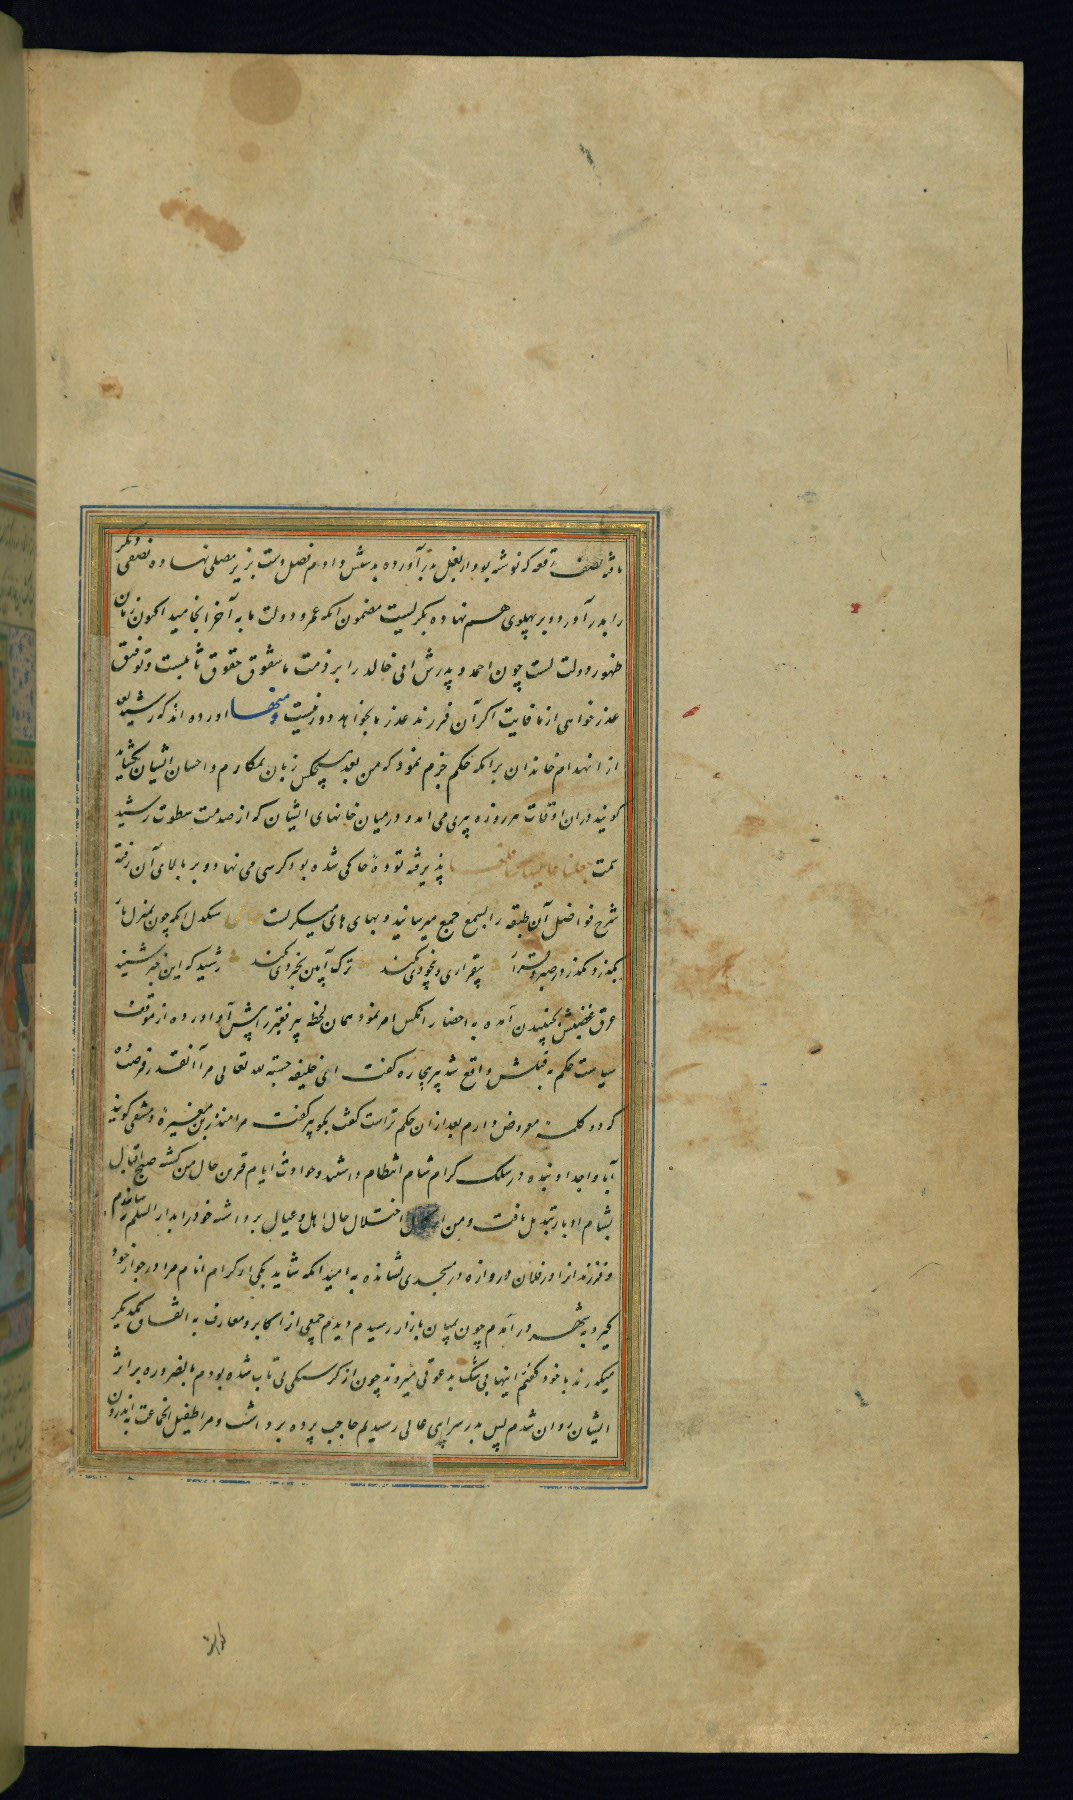 یافته نصف رقعه که نوشته بود از بغل بدر آورده بدستش دادم نصل دست بزیر مصلی نهاده نصفی دیگر
را بدر آورد و بر پهلوی هم نهاده بگریست مضمون آنکه عمر و دولت ما به آخر انجامید اکنون زمان
ظهور دولت تست چون احمد و پدرش ابی خالد را بر ذمت ما حقوق ثابتست و توفیق
عذرخواهی از ما فایت اگر آن فرزند عذر ما بخواهد دور نیست و منها آورده اند که رشید بعد
از انهدام خاندان برامکه حکم جزم نمود که من بعد هیچکس زبان بمکارم و احسان ایشان نگشاید
گویند در آن اوقات هر روزه پیری می آمد و در میان خانهای ایشان که از صدمت سطوت رشید
سمت جعلنا عالیها سافلها پذیرفته توده خاکی شده بود کرسی می نهاد و بر بالای آن رفته
شرح فواضل آن طبقه را بسمع جمع میرسانید و بهای های میگریست سنگدل آنکه چون بمنزل یار
بگذرد بگذرد ز صبر و قرار بیقراری و بیخودی نکند ترک آیین بخردی نکند رشید که این خبر شنید
عرق غضبش بجنبیدن آمده به احضار آنکس امر نمود همان لحظه پیر فقیر را پیش او آورده از موقف
سیاست حکم به قتلش واقع شد پیر بیچاره گفت ای خلیفه حسبة لله تعالی مرا آنقدر فرصت ده
که دو کلمه معروض دارم بعد از آن حکم تراست گفت بگو پیر گفت مرا منذر بن مغیره دمشقی گویند
آبا و اجداد بنده در سلک کرام شام انتظام داشتند و حوادث ایام قرین حال من گشته صبح اقبال
بشام ادبار تبدیل یافت و من اختلال حال اهل و عیال برداشته خود را بدار السلم رسانیدم
و فرزندان را در فلان دروازه در مسجدی نشانده به امید آنکه شاید یکی از کرام انام مرا در جوار خود
گیرد به شهر در آمدم چون بمیان بازار رسیدم دیدم جمعی از اکابر و معارف به اتفاق یکدیگر
میگذرند با خود گفتم اینها بی شک به دعوتی میروند چون از گرسنگی بی تاب شده بودم بالضروره بر اثر
ایشان روان شدم پس بدر سرای عالی رسیدیم حاجب پرده برداشت و مرا طفیل آنجماعت به اندرون